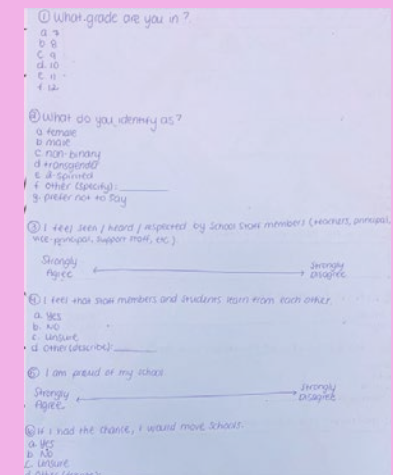 ① What grade are you in?
a 7
b 8
c 9
d. 10
e 11
f. 12
② What do you identify as?
a female
b male
c non-binary
d transgender
e 2-spirited
f other (specify):
g. prefer not to say
③ I feel seen / heard / respected by school staff members (teachers, principal,
vice-principal, support staff, etc.)
Strongly Strongly
Agree Disagree
④ I feel that staff members and students learn from each other.
a. yes
b. no
c. unsure
d other (describe):
⑤ I am proud of my school
Strongly Strongly
Agree Disagree
⑥ If I had the chance, I would move schools.
a yes
b No
c. unsure